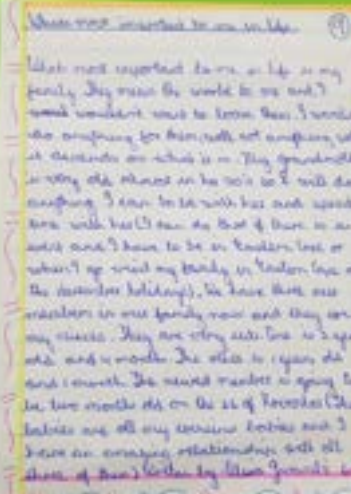 What most important to me in life
What most important to me in life is my
family. They mean the world to me and I
wouldn't want to loose them. I would
do anything for them, well not anything, well
it depends on what is it. My grandmother
is very old almost in her 90's so I will do
anything I can to be with her and spend
time with her (I can do that if there is an
and I have to be in Eastern Cape or
when I go visit my family in Eastern Cape
the december holidays). We have three new
members in our family now and they are
my nieces. They are very cute. One is 2 years
old and a month. The other is 1 year old
and 1 month. The newest member is going to
be two months old on the 26 of November (The
babies are all my cousins babies and I
have an amazing relationship with all
three of them) Written by